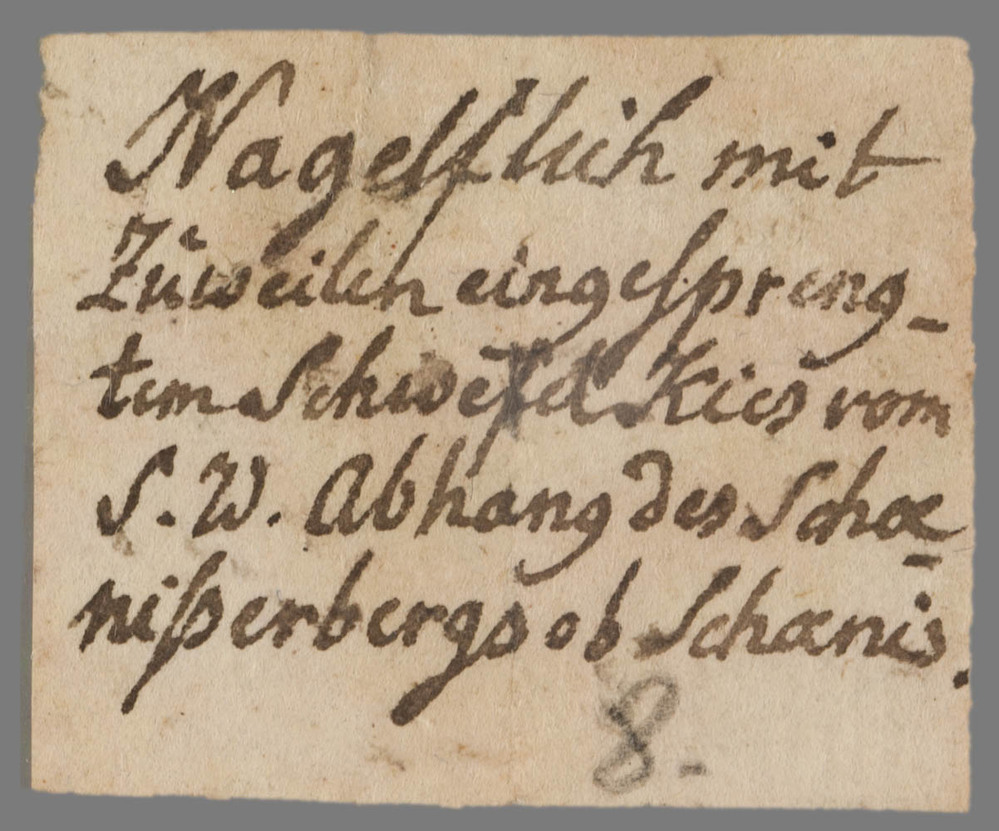 Nagelfluh mit
Zuweilen eingespreng-
tem Schwefel Kies vom
S. W. Abhang des Schæ-
nißerbergs ob Schænis.
8.